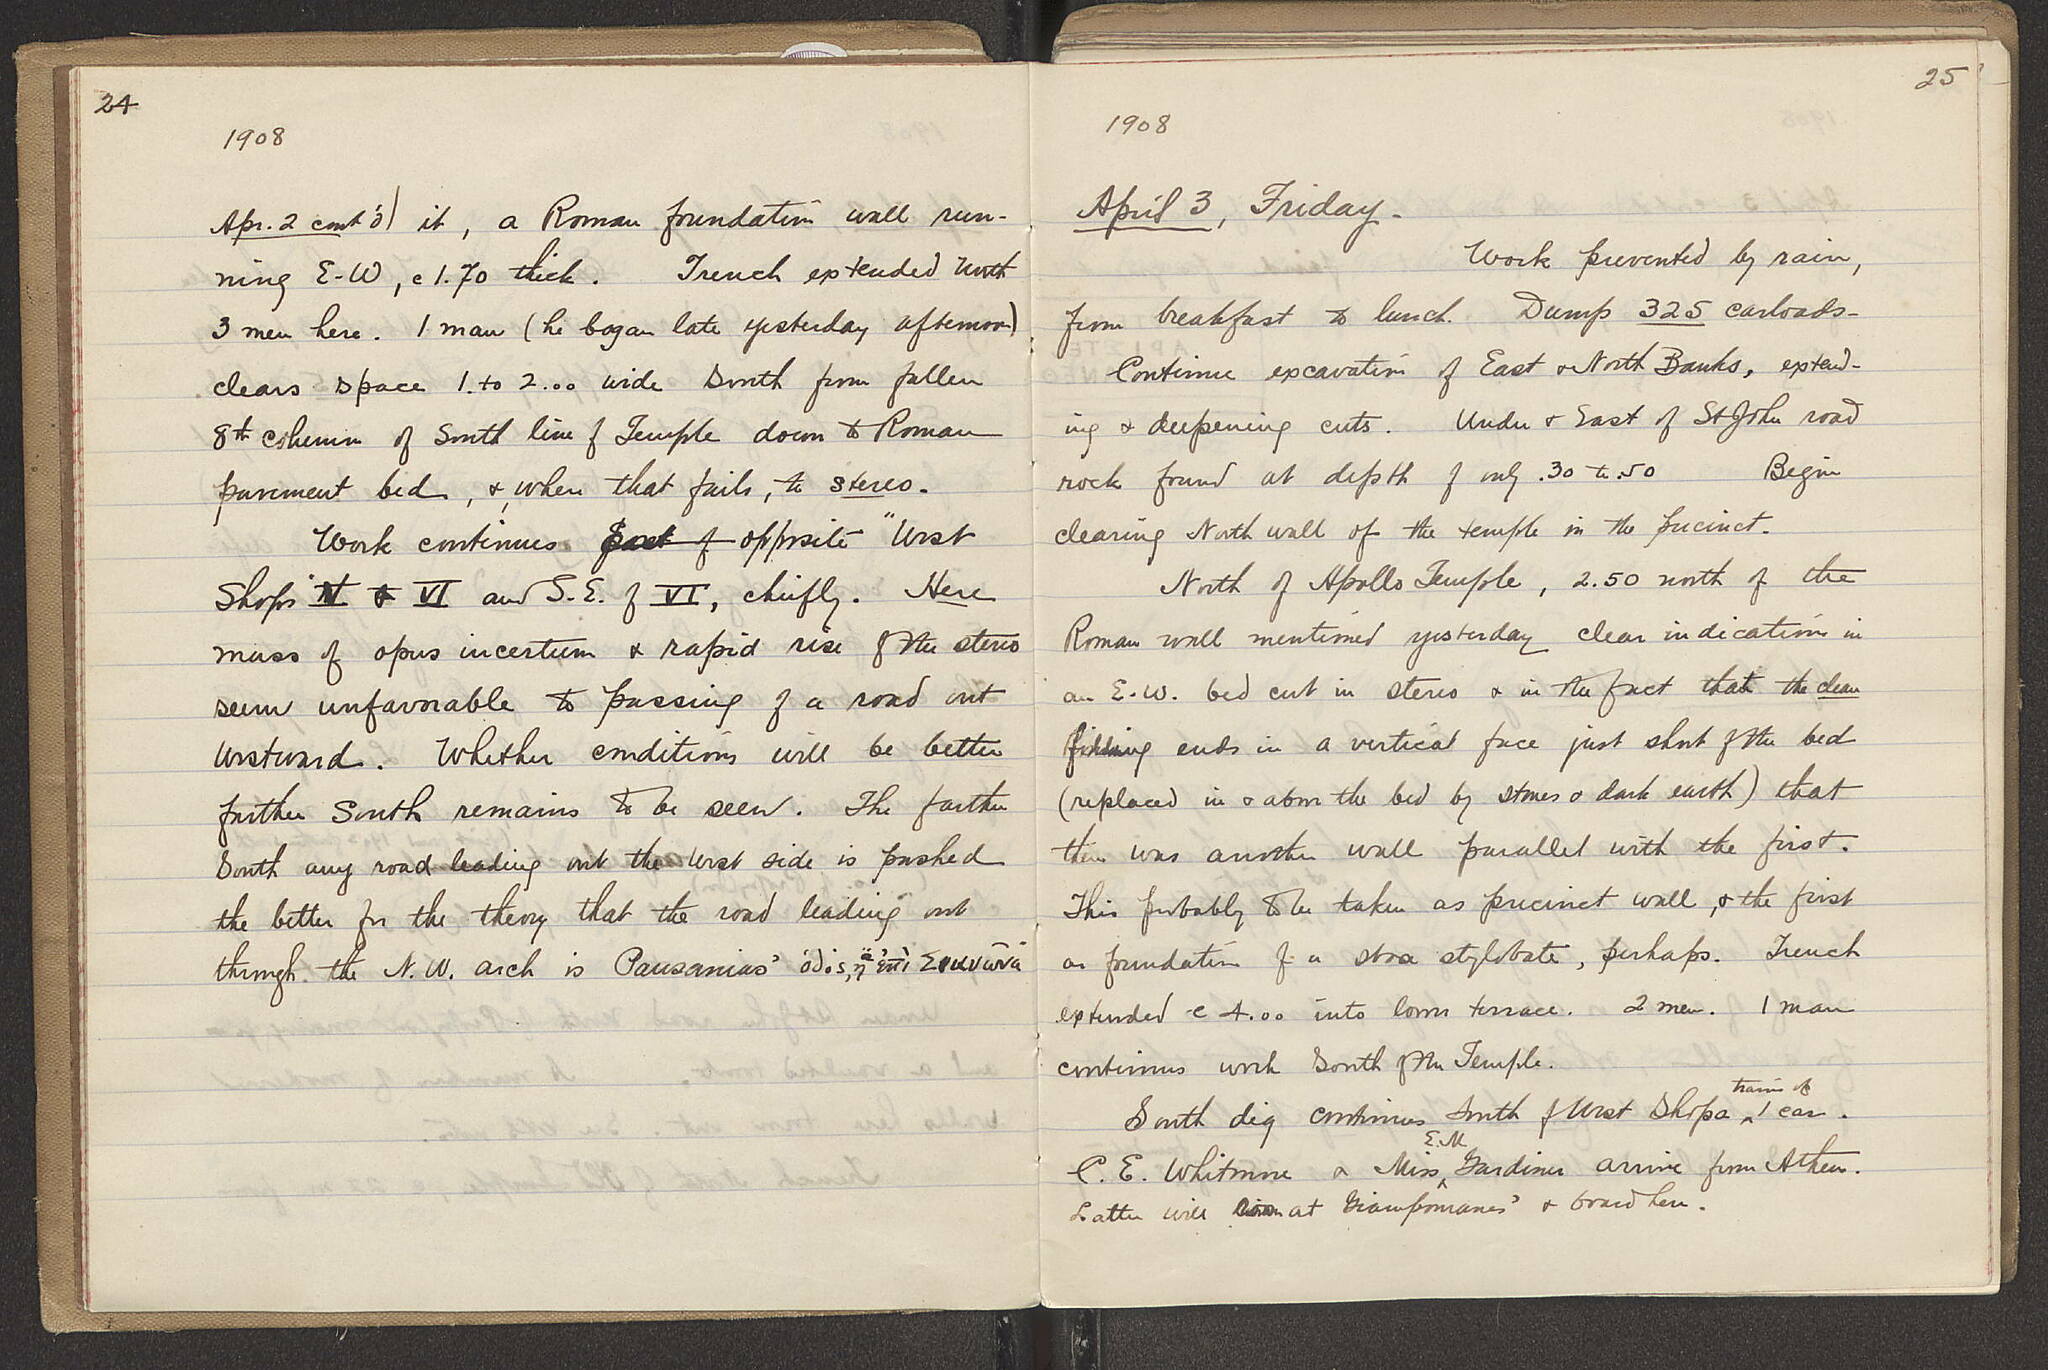 24
1908
Apr. 2 cont'd) it, a Roman foundation wall run-
ning E-W, c 1.70 thick. Trench extended North
3 men here. 1 man (he began late yesterday afternoon)
clears space 1. to 2.00 wide South from fallen
8th column of South line of Temple down to Roman
pavement bed, &, when that fails, to stereo.
Work continues East of opposite "West
Shops" & VI and S.E. of VI, chiefly. Here
mass of opus incertum & rapid rise of the stereo
seem unfavorable to passing of a road out
Westward. Whether conditions will be better
further South remains to be seen. The farther
South any road leading out the West side is pushed
the better for the theory that the road leading out
through the N.W. arch is Pausanias' ὁδός, ἡ ἐπὶ Σικυῶνα
25
1908
April 3, Friday.
Work prevented by rain,
from breakfast to lunch. Dump 325 carloads-
Continue excavation of East & North Banks, extend-
ing & deepening cuts. Under & East of St John road
rock found at depth of only .30 to .50 Begin
clearing North wall of the temple in the precinct.
North of Apollo Temple, 2.50 north of the
Roman wall mentioned yesterday clear indications in
an E.W. bed cut in stereo & in the fact that the clean
filling ends in a vertical face just short of the bed
(replaced in & above the bed by stones & dark earth) that
there was another wall parallel with the first.
This probably to be taken as precinct wall, & the first
as foundation of a stoa stylobate, perhaps. Trench
extended c 4.00 into lower terrace. 2 men. 1 man
continues work South of the Temple.
South dig continues South of West Shops trains of 1 car.
C. E. Whitmore & Miss E.M Gardiner arrive from Athens.
Latter will room at Giampomanes' & board here.